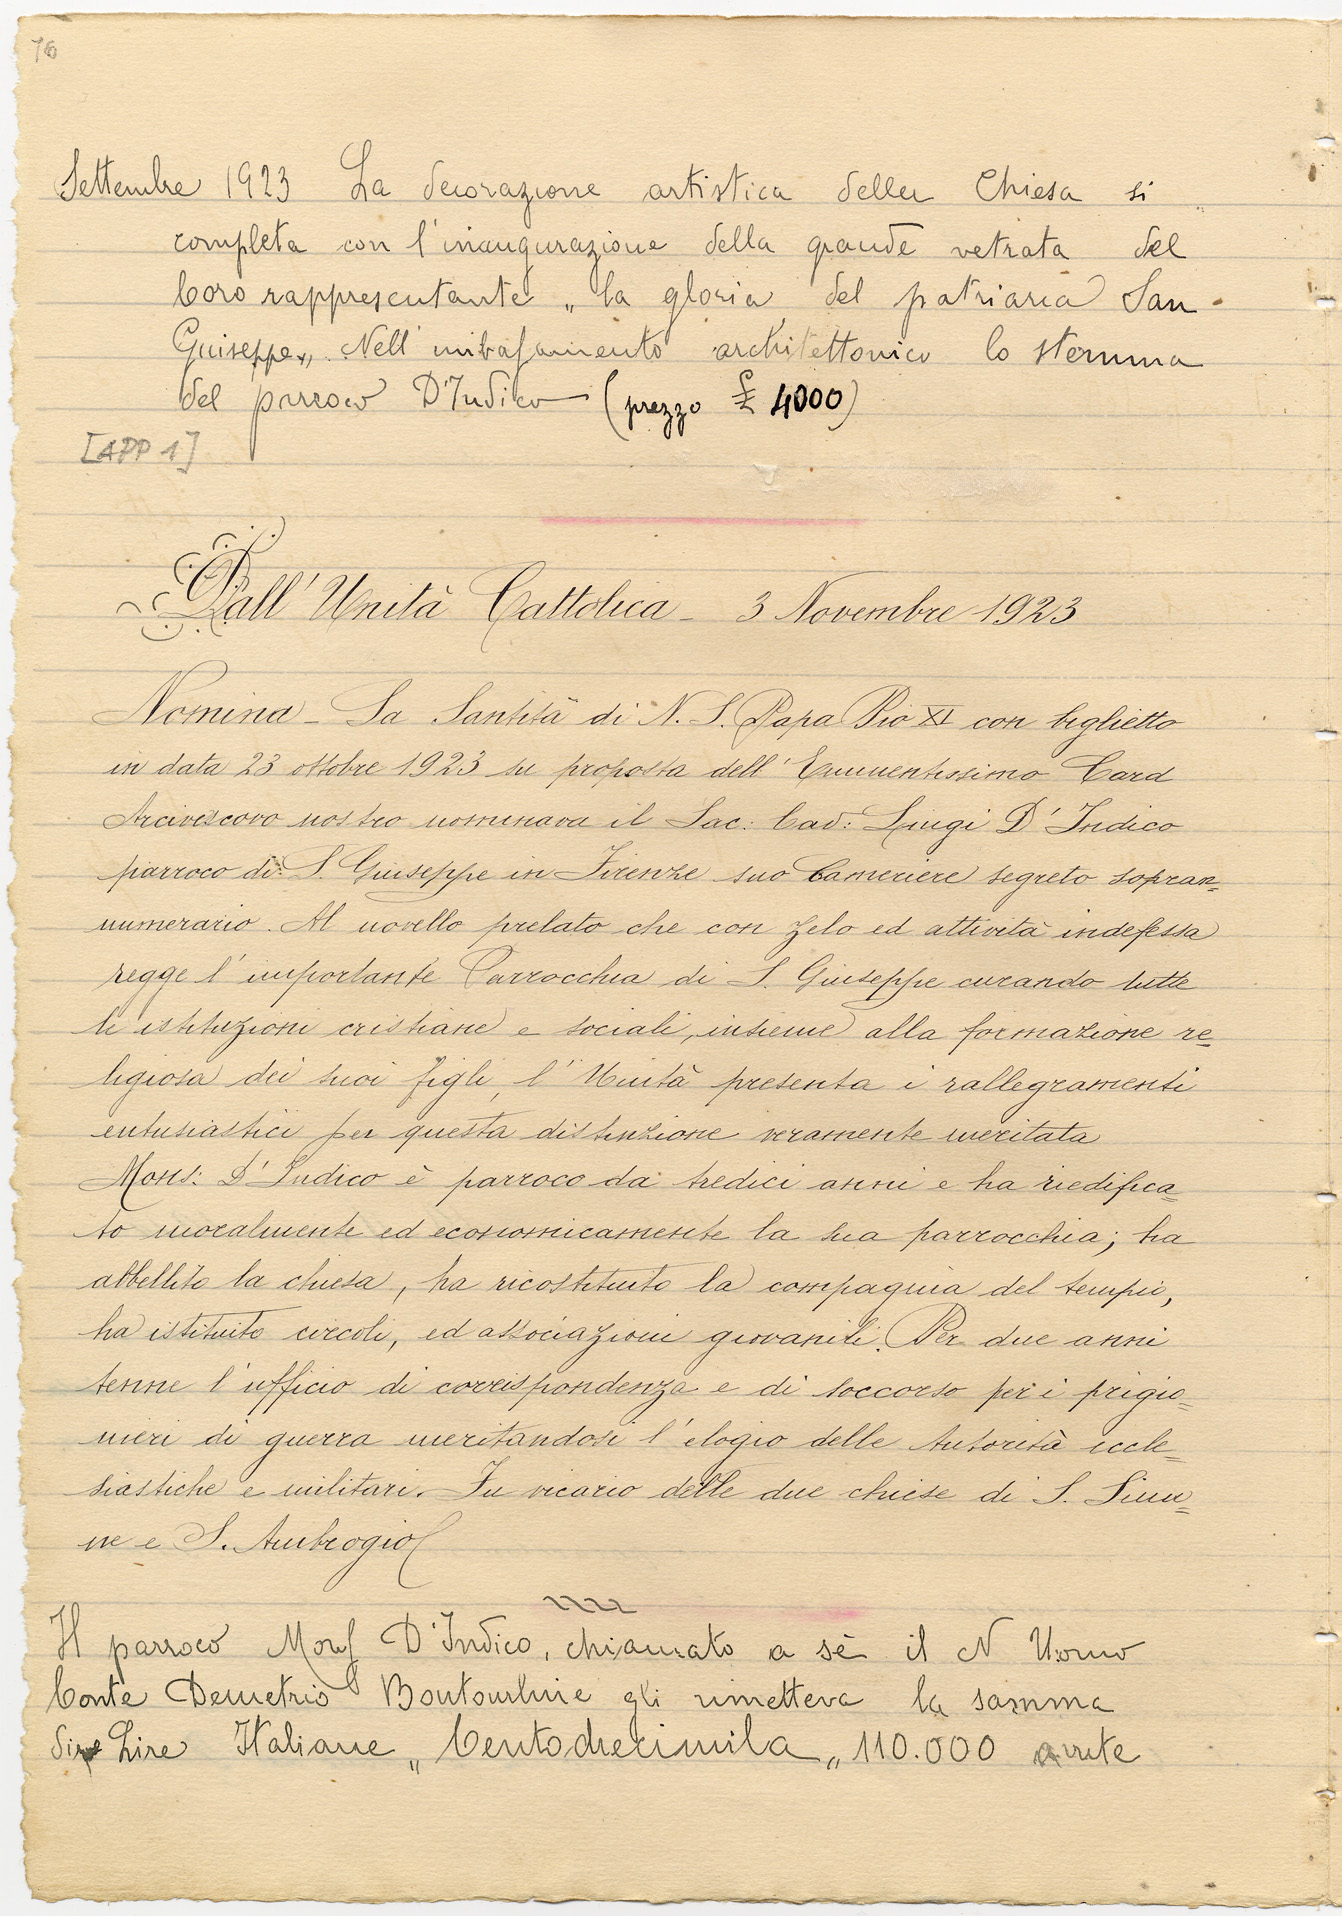 76
Settembre 1923 La decorazione artistica della Chiesa si
completa con l'inaugurazione della grande vetrata del
Coro rappresentante „ la gloria del patriarca San
Guiseppe„. Nell' imbasamento architettonico lo stemma
del parroco D'Indico (prezzo £ 4000)
[APP 1]
Dall' Unità Cattolica - 3 Novembre 1923
Nomina - La Santità di N. S. Papa Pio XI con biglietto
in data 23 ottobre 1923 su proposta dell' Eminentissimo Card
Arcivescovo nostro nominava il Sac: Cav: Luigi D' Indico
parroco di S. Giuseppe in Firenze suo Cameriere segreto sopran=
numerario. Al novello prelato che con zelo ed attività indefessa
regge l' importante Parrocchia di S. Giuseppe curando tutte
le istituzioni cristiane e sociali, insieme alla formazione re=
ligiosa dei suoi figli, l' Unità presenta i rallegramenti
entusiastici per questa distinzione veramente meritata
Mons: D' Indico è parroco da tredici anni e ha riedifica=
to moralmente ed economicamente la sua parrocchia; ha
abbellito la chiesa, ha ricostituito la compagnia del tempio,
ha istituito circoli, ed associazioni giovanili. Per due anni
tenne l' ufficio di corrispondenza e di soccorso per i prigio=
nieri di guerra meritandosi l' elogio delle Autorità eccle=
siastiche e militari. Fu vicario delle due chiese di S. Simo=
ne e S. Ambrogio
Il parroco Mons D'Indico, chiamato a sè il N Uomo
Conte Demetrio Boutourline gli rimetteva la somma
Lire Italiane „ Centodiecimila „ 110.000